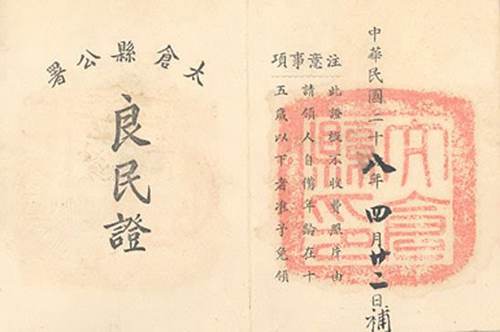 太倉縣公署
良民證
中華民國二十八年四月廿二日補
注意事項
此證概不收費照片由
請領人自備年齡在十
五歲以下者准予免領
太倉縣印